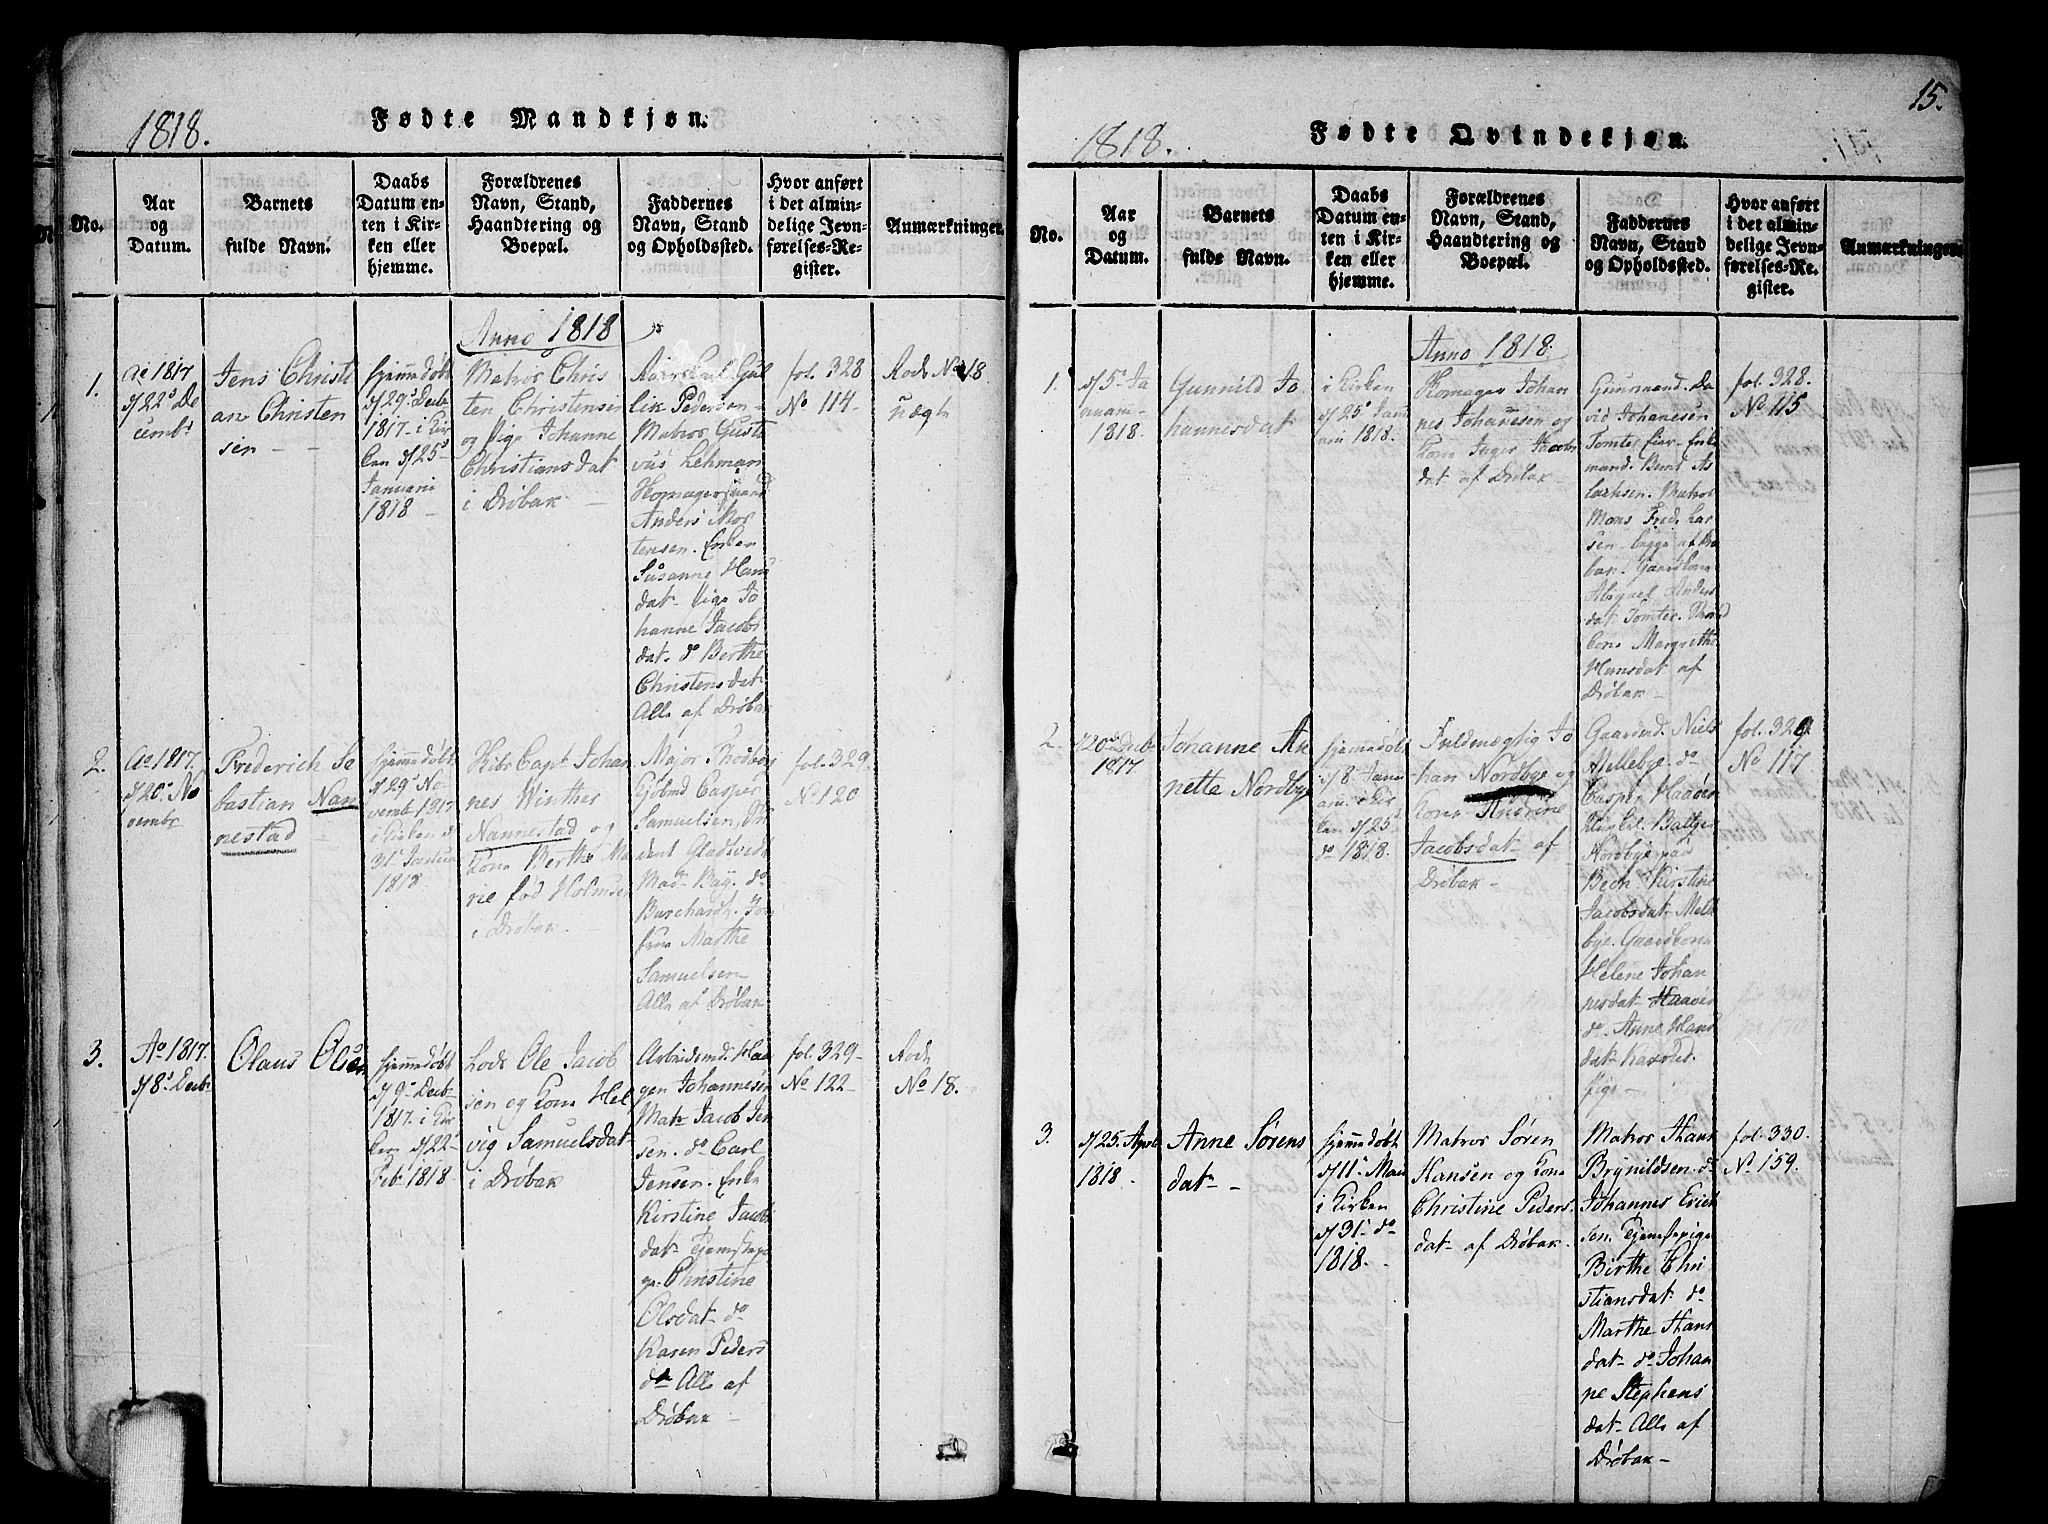 1818.
Fødte Mandkjøn.
No.
Aar
og
Datum.
Barnets
fulde Navn.
Daabs
Datum en-
ten i Kir-
ken eller
hjemme.
Forældrenes
Navn, Stand,
Haandtering og
Boepæl.
Faddernes
Navn, Stand
og Opholdssted.
Hvor anført
i det almin-
delige Jevn-
førelses-Re-
gister.
Anmærkninger.
Anno 1818
1.
Ao 1817
d/22s De
cembr
Jens Christi
an Christen
sen
hjemmedøbt
d/29s Decbr
1817 i Kir
ken d/25s
Januarii
1818
Matros Chris
ten Christensen
og Pige Johanne
Christiansdat
i Drøbak
Gul
lik Pedersen
Matros Gusta
vus Lehman
Anders Mor
tensen. Enken
Susanne Hans
dat. Pige Jo
hanne Jacobs
dat. do Berthe
Christensdat
Alle af Drøbak
fol. 328
No 114
Rode No 18
uægte
2.
Ao 1817.
d/20s No
vembr
Frederich Se
bastian Nan
nestad
hjemmedøbt
d/29s No
vembr 1817
i Kirken d
31s Janua
1818
Skibs Capt Johan
nes Winther
Nannestad og
Kone Berthe Ma
rie fød Holmsen
i Drøbak
Major
Casper
Samuelsen,
Mad. Bay. do
Burchardt. Jom
frue Marthe
Samuelsen
Alle af Drøbak
fol. 329
No 120
3.
Ao 1817.
d/8s Decbr
Olaus Olsen
hjemmedøbt
d/9s Decbr
1817. i Kir
ken d/22s
Feb. 1818
Lods Ole Jacob
sen og Kone Hel
vig Samuelsdat
i Drøbak
Arbeidsmd. Haa
gen Johannesen
Matr Jacob Jen
sen. do Carl
Jensen. Enke
Kirstine Jacobs
dat. Tjenestepi
ge. Christine
Olsdat. do
Karen Peders
da Alle af
Drøbak
fol. 329
No 122
Rode
No 18.
15.
1818.
Fødte Qvindekjøn.
No.
Aar
og
Datum.
Barnets
fulde Navn.
Daabs
Datum en-
ten i Kir-
ken eller
hjemme.
Forældrenes
Navn, Stand,
Haandtering og
Boepæl.
Faddernes
Navn, Stand
og Opholdssted.
Hvor anført
i det almin-
delige Jevn-
førelses-Re-
gister.
Anmærkninger.
Anno 1818.
1.
d/5s Ja
nuarii
1818.
Gunnild Jo
hannesdat
i Kirken
d/25s Janu
arii 1818.
Johan
nes Johannesen og
Kone Inger Jacobs
dat af Drøbak
Gaarmand. Da
vid Johanesen
Tomter Eier. Enke
mand. Bernt As
lachsen. Matros
Mons Fredr. Lar
sen begge af Drø
bak. Gaardkone
Abigael Anders
dat Tomter.
Kone Margrethe
Hansdat af
Drøbak
fol. 328.
No 115
2.
d/20s Decbr
1817.
Johanne An
netta Nordbye
hjemmedøbt
d/8. Janu
arii i Kir
ken d/25s
do 1818.
Fuldmægtig Jo
han Nordbye og
Kone Andrine
Jacobsdat af
Drøbak
Gaardmd. Niels
Mellebye. do
Casper Haaver
Ungkl. Baltzer
Nordbye paa
Bech. Kirstine
Jacobsdat Mell
bye. Gaardkone
Helene Johan
nesdat Haaver
do. Anne Hans
dat
Pige
fol. 329
No 117
3.
d/25. April
1818
Anne Sørens
dat
hjemmedøbt
d/11s Maii
i Kirken
d/31s do
1818.
Matros Søren
Hansen og Kone
Christine Peders
dat af Drøbak
Matros Hans
Brynildsen. do
Johannes Erich
sen. Tjenestepige
Birthe Chri
stiansdat do
Marthe Hans
dat do Johan
ne Stephens
dat Alle af
Drøbak
fol. 330.
No 159.